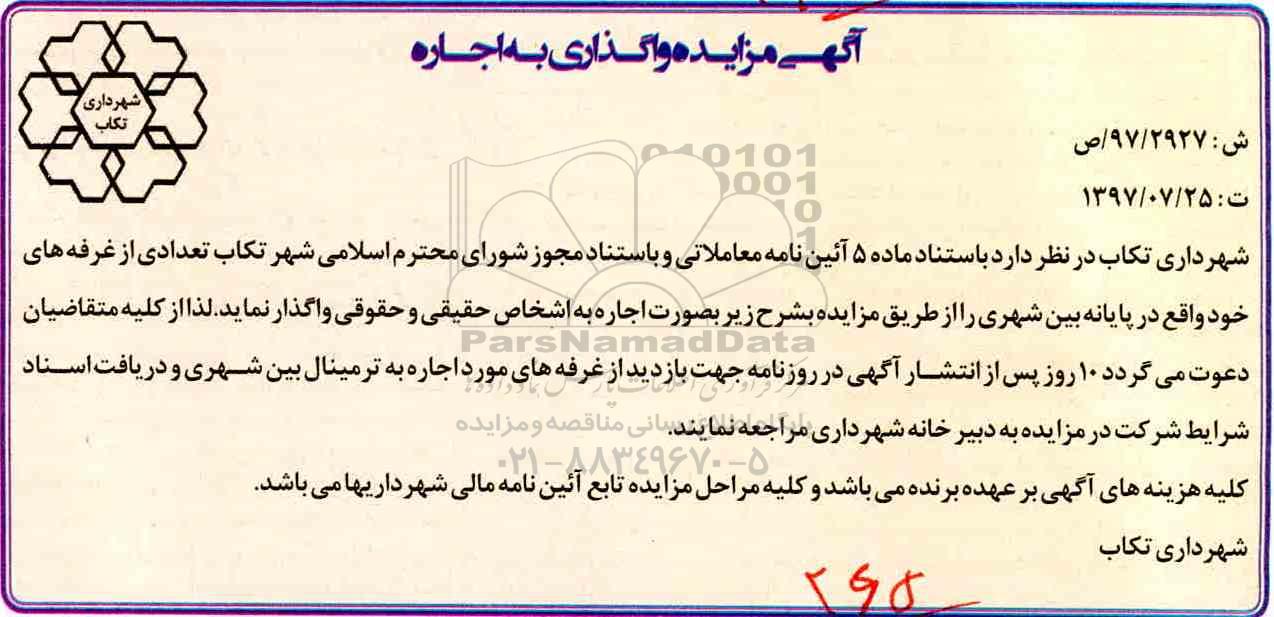 آگهی مزایده واگذاری به اجاره
شهرداری
تکاب
ش: ۹۷/۲۹۲۷/ص
ت: ۱۳۹۷/۰۷/۲۵
شهرداری تکاب در نظر دارد باستناد ماده ۵ آئین نامه معاملاتی و باستناد مجوز شورای محترم اسلامی شهر تکاب تعدادی از غرفه های
خود واقع در پایانه بین شهری را از طریق مزایده بشرح زیر بصورت اجاره به اشخاص حقیقی و حقوقی واگذار نماید.لذا از کلیه متقاضیان
دعوت می گردد ۱۰ روز پس از انتشار آگهی در روزنامه جهت بازدید از غرفه های مورد اجاره به ترمینال بین شهری و دریافت اسناد
شرایط شرکت در مزایده به دبیر خانه شهرداری مراجعه نمایند.
کلیه هزینه های آگهی بر عهده برنده می باشد و کلیه مراحل مزایده تابع آئین نامه مالی شهرداریها می باشد.
شهرداری تکاب
ParsNamadData
پایگاه اطلاع رسانی مناقصه و مزایده
۰۲۱-۸۸۳۴۹۶۷۰-۵